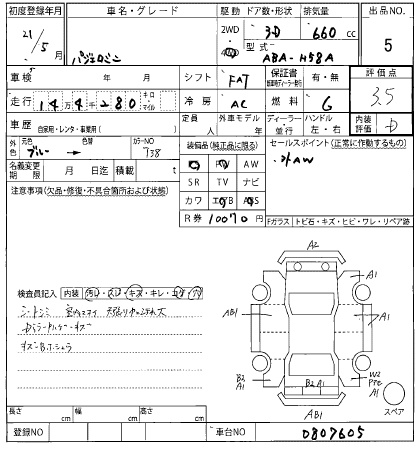 初度登録年月 車名・グレード 駆動 ドア数・形状 排気量 出品NO.
21/5月 パジェロミニ 2WD 4WD 3D 660cc 5
型式 ABA-H58A
車検 年 月 シフト FAT 保証書 有・無 評価点
走行 14万4千280 キロ・マイル 冷房 AC 燃料 G 3.5
車歴 自家用・レンタ・事業用( ) 定員 人 外車モデル 年 ディーラー・並行 ハンドル 左・右 内装評価 D
外色 元色 ブルー 色替 カラーNO 738 装備品(純正品に限る) セールスポイント(正常に作動するもの)
名義変更期限 月 日迄 積載 t PS PW AW ・社外AW
SR TV ナビ
注意事項(欠品・修復・不具合箇所および状態) カワ エアB ABS
R券 10070円
Fガラス トビ石・キズ・ヒビ・ワレ・リペア跡
検査員記入 内装 汚レ・スレ・キズ・キレ・コゲ・穴
シートシミ
キズ
A2
A1 A1
AB1 A1
B2 A1 B2 A1 W2 A1
AB1 スペア
長さ cm 幅 cm 高さ cm
登録NO 車台NO. 0807605